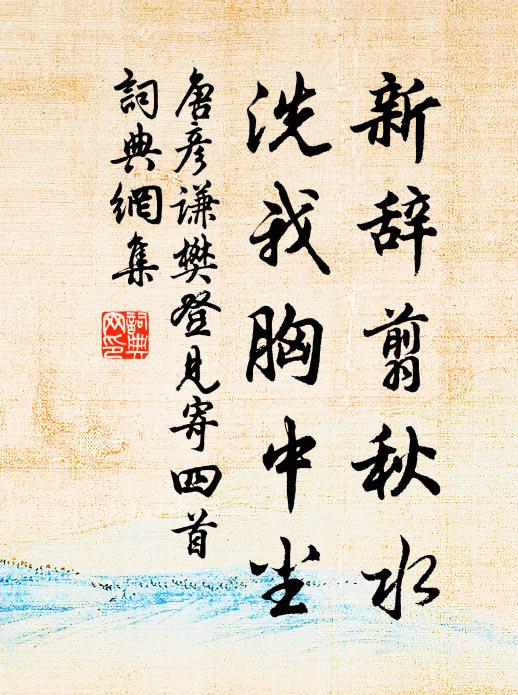 新辞翦秋水
洗我胸中尘
唐彦谦樊登见寄四首
詞典網集
詞典網印